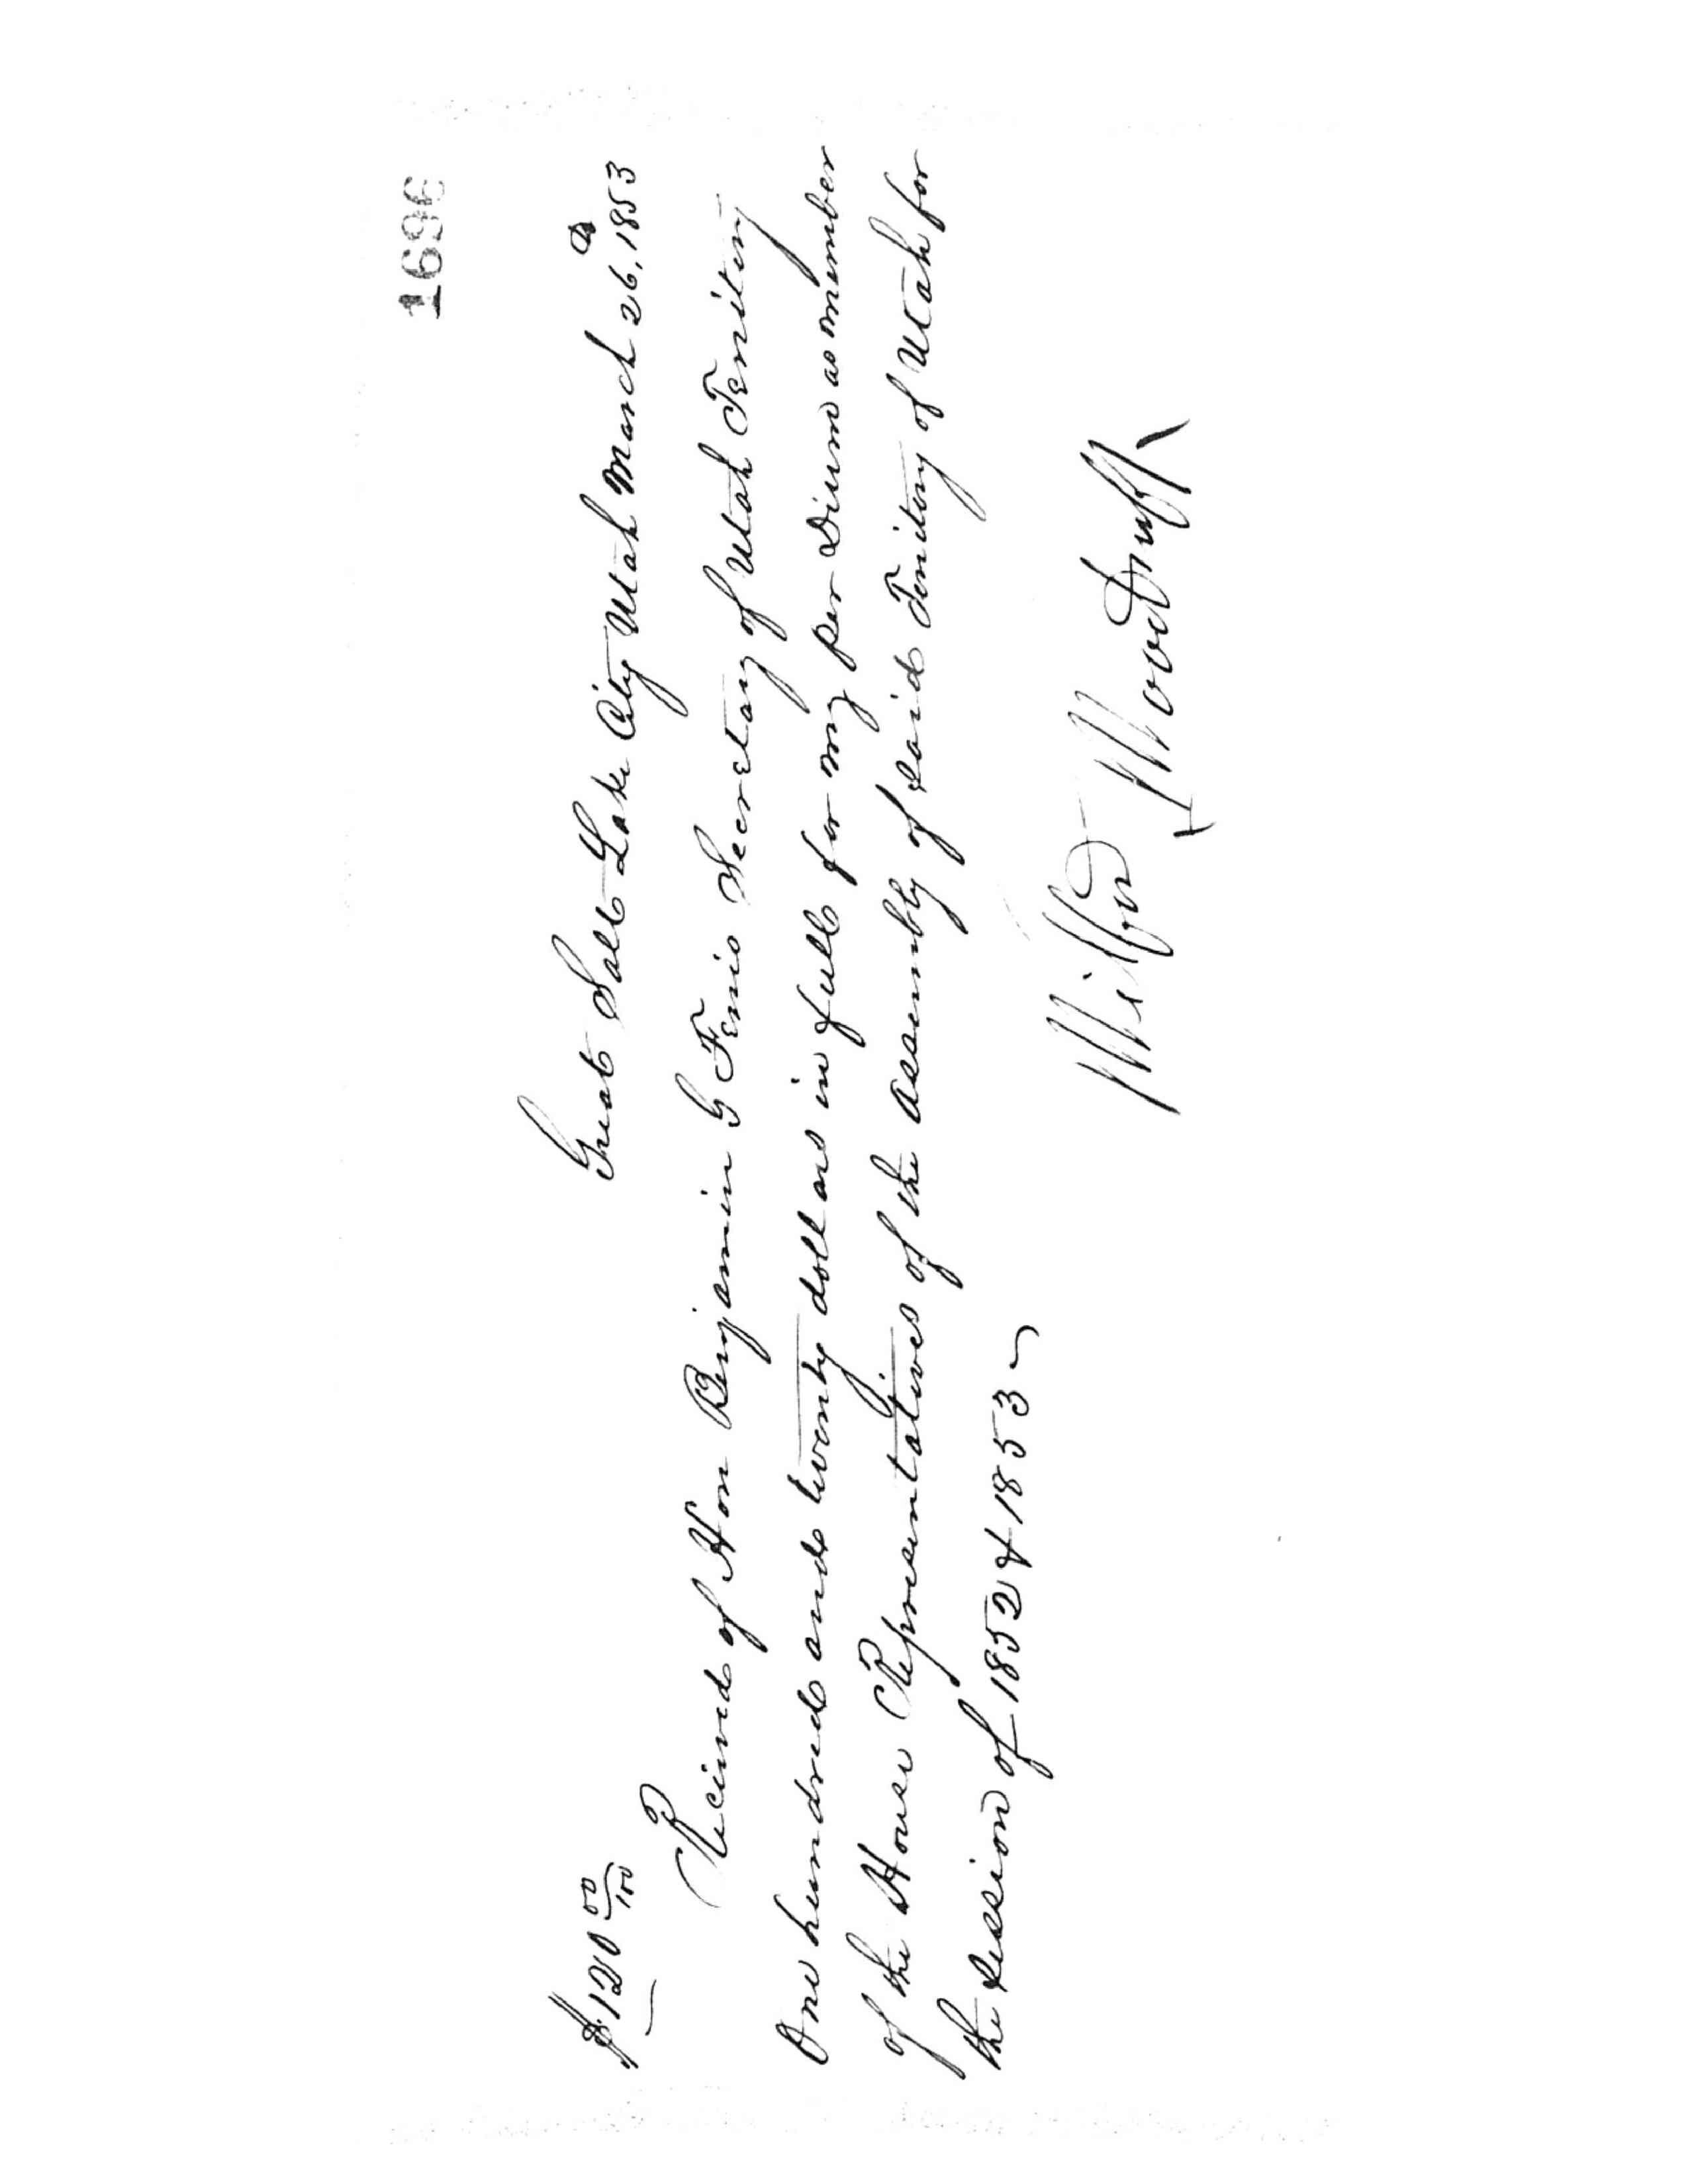 1696
$120 00/100 Great Salt Lake City Utah March 26, 1853
Recived of Hon Benjamin G Ferris Secretary of Utah Territory
One hundred and twenty dollars in full for my per Dium as member
of the House Representatives of the Assembly of said Territory of Utah for
the session of 1852 & 1853
Wilford Woodruff